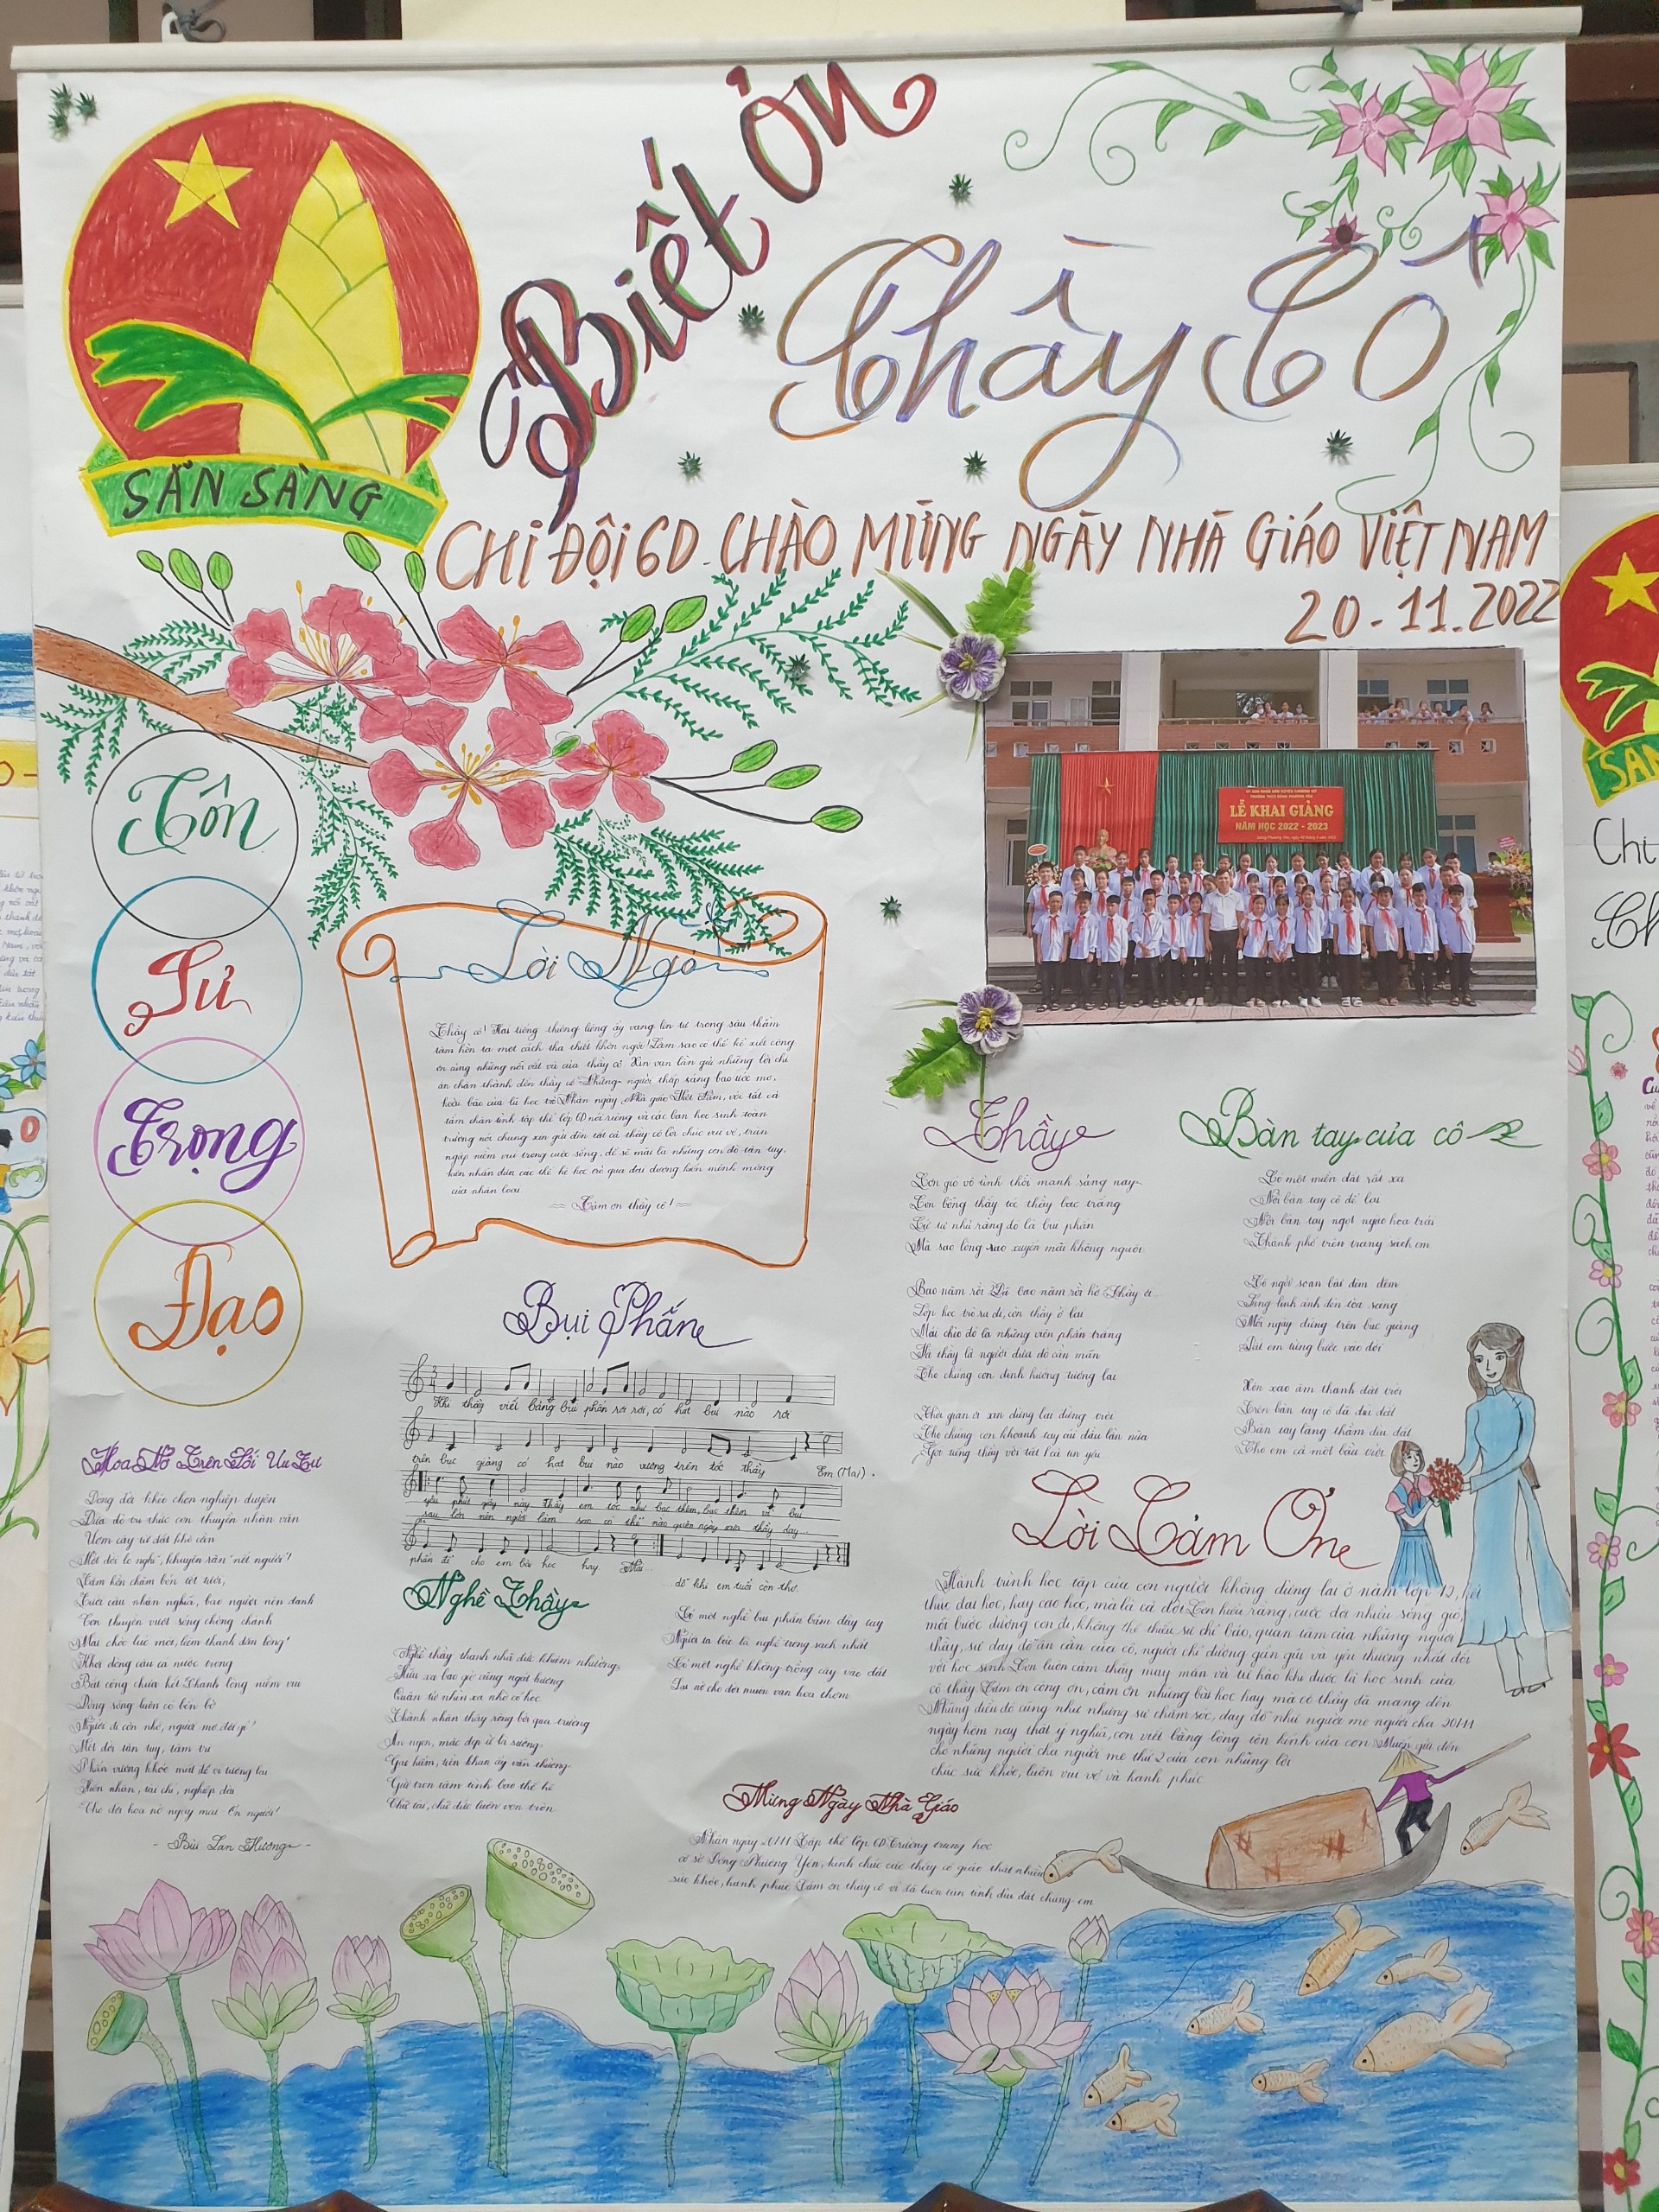 Biết Ơn
Thầy Cô
SẴN SÀNG
CHI ĐỘI 6D CHÀO MỪNG NGÀY NHÀ GIÁO VIỆT NAM
20-11.2022
LỄ KHAI GIẢNG
NĂM HỌC 2022 - 2023
Tôn
Sư
Trọng
Đạo
Lời Ngỏ
Thầy cô! Hai tiếng thiêng liêng ấy vang lên từ trong sâu thẳm
tâm hồn ta một cách tha thiết khôn nguôi! Làm sao có thể kể xiết công
ơn cùng những nỗi vất vả của thầy cô. Xin vạn lần gửi những lời chi
ân chân thành đến thầy cô Những người thắp sáng bao ước mơ,
hoài bão của lũ học trò Nhân ngày Nhà giáo Việt Nam, với tất cả
tấm chân tình tập thể lớp 6D nói riêng và các bạn học sinh toàn
trường nói chung xin gửi đến tất cả thầy cô lời chúc vui vẻ, tràn
ngập niềm vui trong cuộc sống, để sẽ mãi là những con đò tận tụy,
kiên nhẫn đưa các thế hệ học trò qua đại dương kiến mênh mông
của nhân loại
Cảm ơn thầy cô!
Thầy
Cơn gió vô tình thổi mạnh sáng nay
Con bỗng thấy tóc thầy bạc trắng
Cứ tự nhủ rằng đó là bụi phấn
Mà sao lòng sao xuyến mãi không nguôi
Bao năm rồi Đã bao năm rồi hở Thầy ơi...
Lớp học trò ra đi, còn thầy ở lại
Mái chèo đó là những viên phấn trắng
Và thầy là người đưa đò cần mẫn
Cho chúng con định hướng tương lai
Thời gian ơi xin dừng lại đừng trôi
Cho chúng con khoanh tay cúi đầu lần nữa
Gọi tiếng thầy với tất cả tin yêu
Bàn tay của cô
Có một miền đất rất xa
Nơi bàn tay cô để lại
Nơi bàn tay ngọt ngào hoa trái
Thành phố trên trang sách em
Cô ngồi soạn bài đêm đêm
Lung linh ánh đèn tỏa sáng
Mỗi ngày đứng trên bục giảng
Dắt em từng bước vào đời
Xôn xao âm thanh đất trời
Trên bàn tay cô dìu dắt
Bàn tay lặng thầm dìu dắt
Cho em cả một bầu trời
Bụi Phấn
Khi thầy viết bảng bụi phấn rơi rơi, có hạt bụi nào rơi
trên bục giảng có hạt bụi nào vương trên tóc thầy Em (Mai).
yêu phút giây này thầy em tóc như bạc thêm, bạc thêm vì bụi
sau lớn nên người làm sao có thể nào quên ngày xưa thầy dạy...
phấn để cho em bài học hay Mai...
dỗ khi em tuổi còn thơ.
Hoa Nở Trên Lối Ưu Tư
Dòng đời khéo chọn nghiệp duyên
Đưa đò tri thức con thuyền nhân văn
Ươm cây từ đất khô cằn
Một đời lo nghĩ, khuyên răn "nết người"!
Tâm hồn chăm bón tốt tươi,
Trước câu nhân nghĩa, bao người nên danh
Con thuyền vượt sóng chòng chành
Mái chèo lúc mới, lúc thanh dân lòng!
Khơi dòng cầu cả nước trong
Bất công chưa hết Thanh lòng niềm vui
Dòng sông luôn có bến bờ
Người đi còn nhớ, người mơ đợi gì?
Một đời tận tụy, tâm trí
Phấn vương khóe mắt để vì tương lai
Hiền nhân, tài chí, nghiệp dài
Cho đời hoa nở ngày mai Ơn người!
- Bùi Lan Hương -
Nghề Thầy
Nghề thầy thanh nhã đức khiêm nhường
Hữu xạ bao giờ cũng ngát hương
Quân tử nhìn xa nhờ có học
Thành nhân thấy rộng bởi qua trường
Ăn ngon, mặc đẹp ừ là sướng
Gạo hiếm, tiền khan ấy vẫn thường
Giữ trọn tâm tình bao thế hệ
Chữ tài, chữ đức luôn vẹn tròn
Có một nghề bụi phấn bám đầy tay
Người ta bảo là nghề trong sạch nhất
Có một nghề không trồng cây vào đất
Lại nở cho đời muôn vạn hoa thơm
Lời Cảm Ơn
Hành trình học tập của con người không dừng lại ở năm lớp 12, kết
thúc đại học, hay cao học, mà là cả đời. Con hiểu rằng, cuộc đời nhiều sóng gió,
mỗi bước đường con đi, không thể thiếu sự chỉ bảo, quan tâm của những người
thầy, sự dạy dỗ ân cần của cô, người chỉ đường gần gũi và yêu thương nhất đối
với học sinh. Con luôn cảm thấy may mắn và tự hào khi được là học sinh của
cô thầy Cảm ơn công ơn, cảm ơn những bài học hay mà cô thầy đã mang đến
Những điều đó cũng như những sự chăm sóc, dạy dỗ như người mẹ người cha 20/11
ngày hôm nay thật ý nghĩa, con viết bằng lòng tôn kính của con Muốn gửi đến
cho những người cha người mẹ thứ 2 của con những lời
chúc sức khỏe, luôn vui vẻ và hạnh phúc
Mừng Ngày Nhà Giáo
Nhân ngày 20/11 Tập thể lớp 6D Trường trung học
cơ sở Đông Phương Yên, kính chúc các thầy cô giáo thật nhiều
sức khỏe, hạnh phúc Cảm ơn thầy cô vì đã luôn tận tình dìu dắt chúng em
Chi